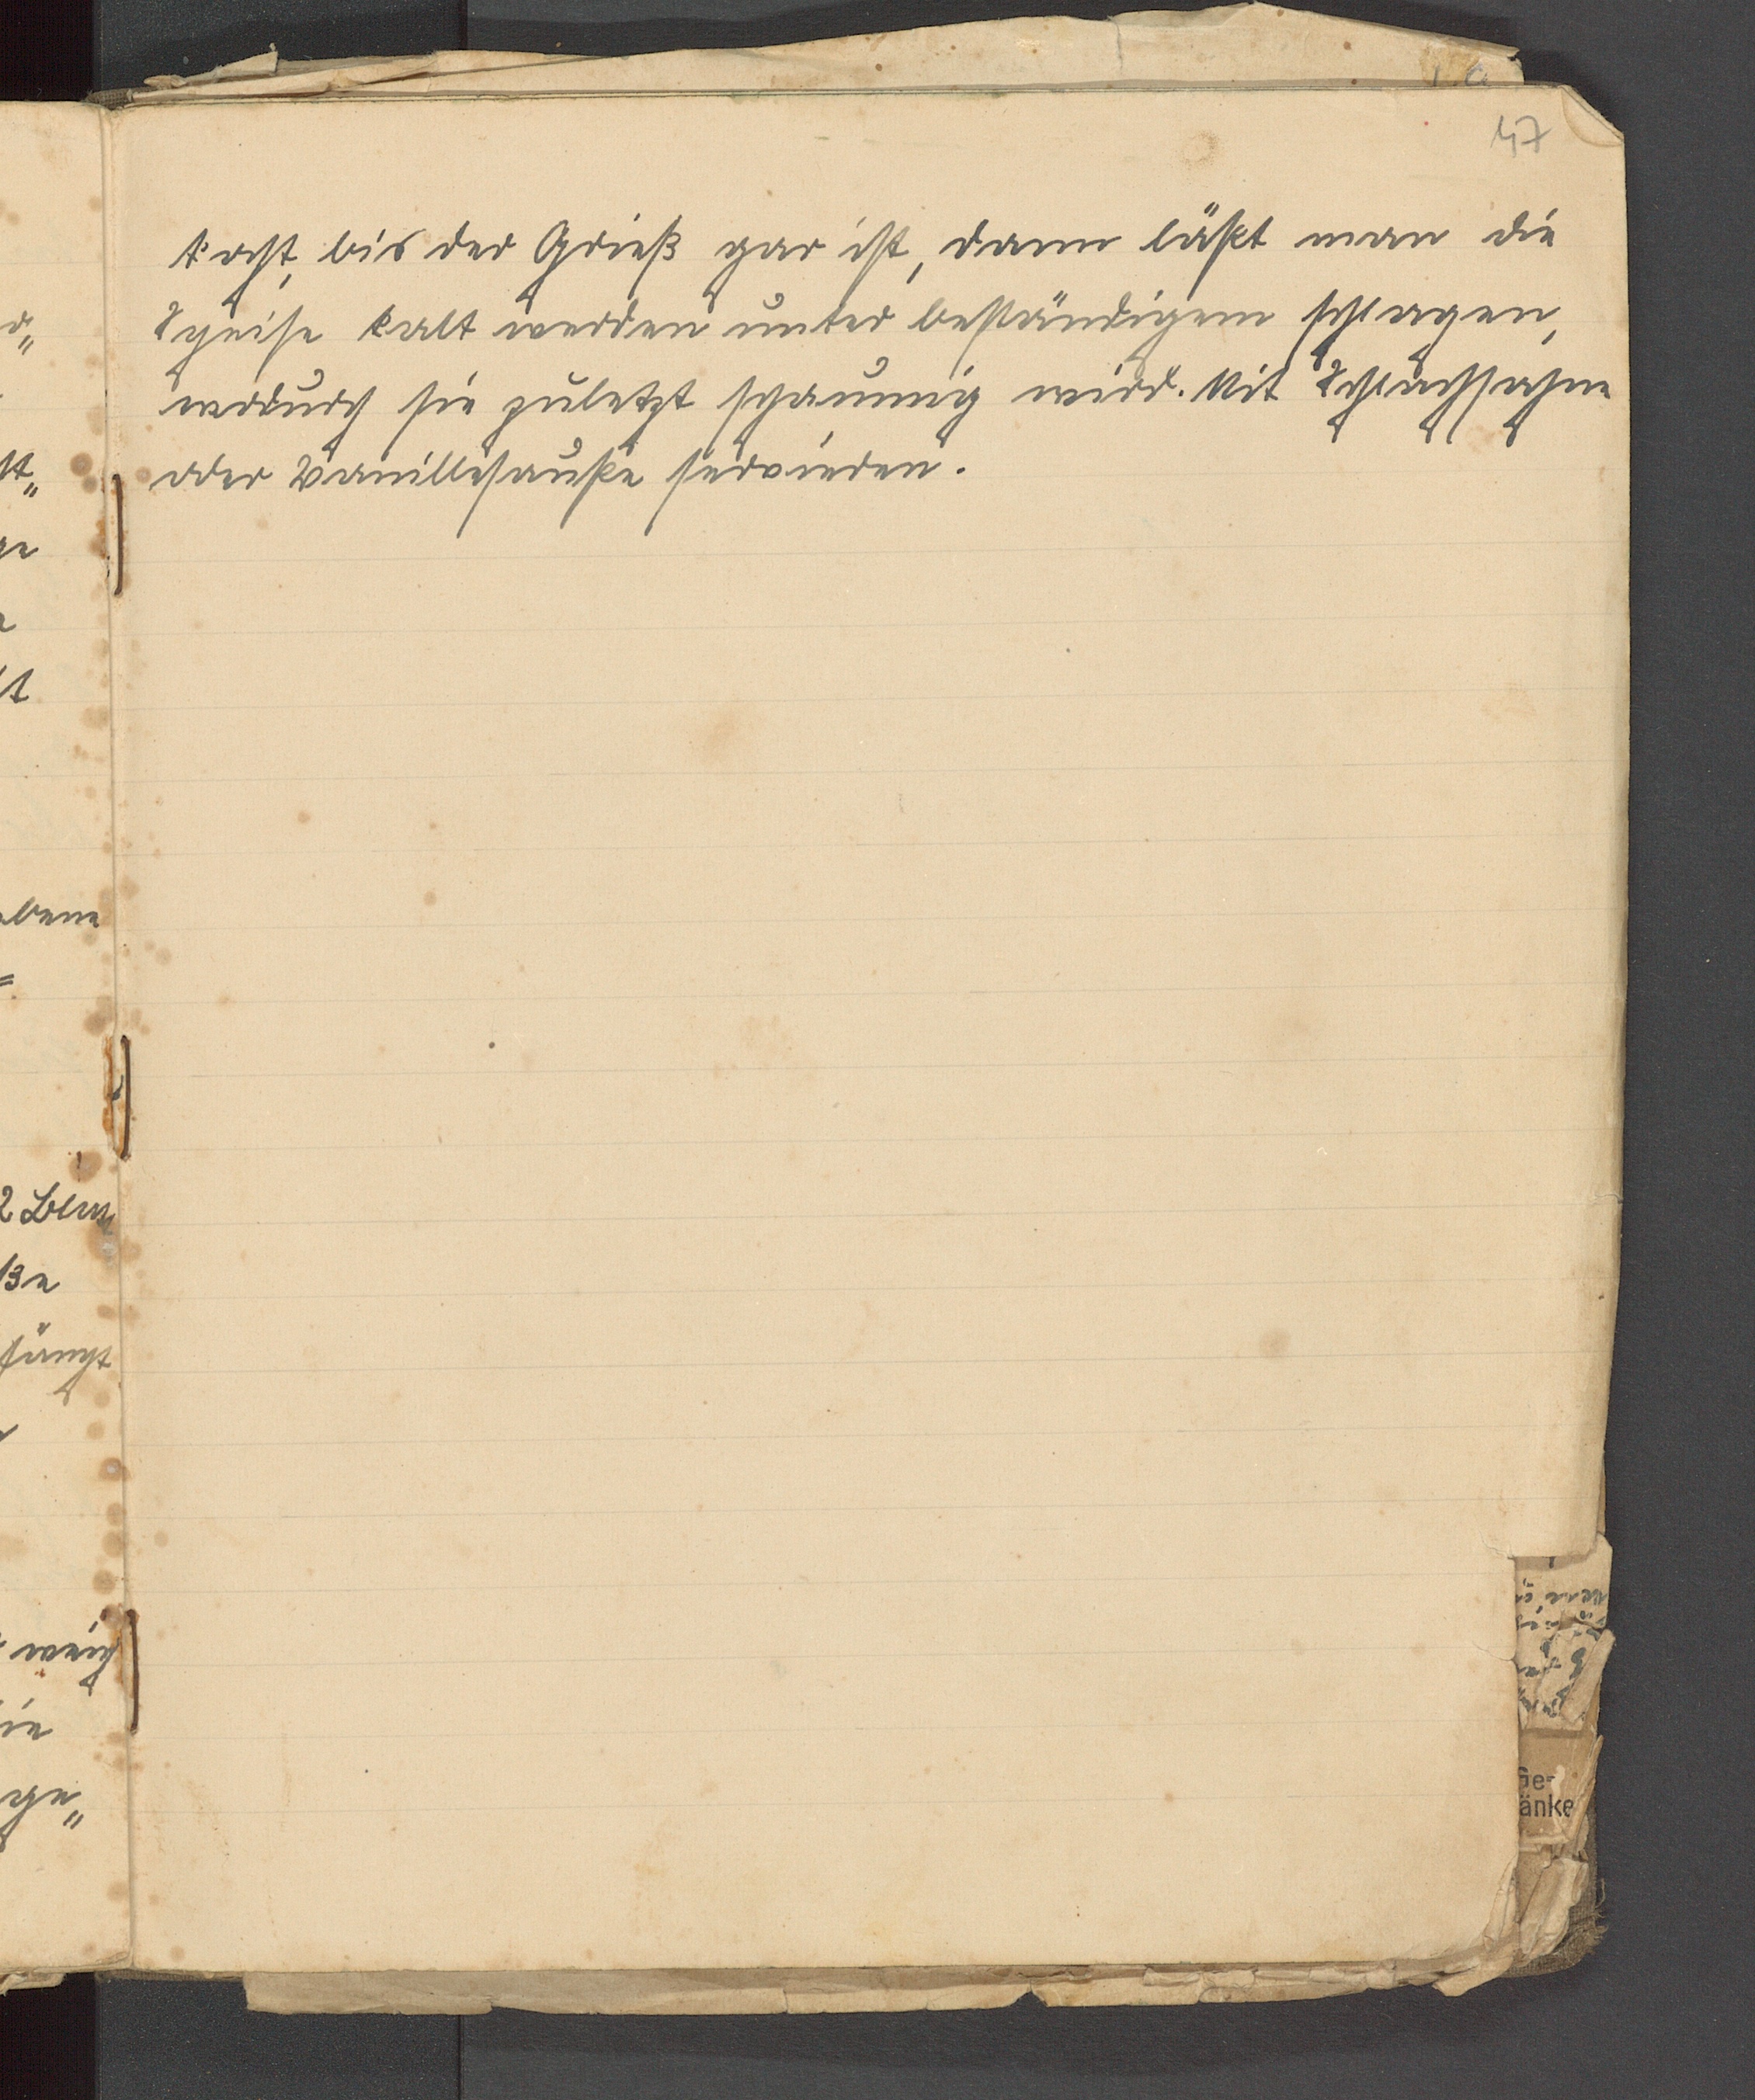 47
kocht, bis der Grieß gar ist, dann läßt man die
Speise kalt werden unter beständigem schlagen,
wodurch sie zuletzt schaumig wird. Mit Schlachsahne
oder Vanillesauße servieren.
2
ße
fängt
weich
ge„
Ge-
änke